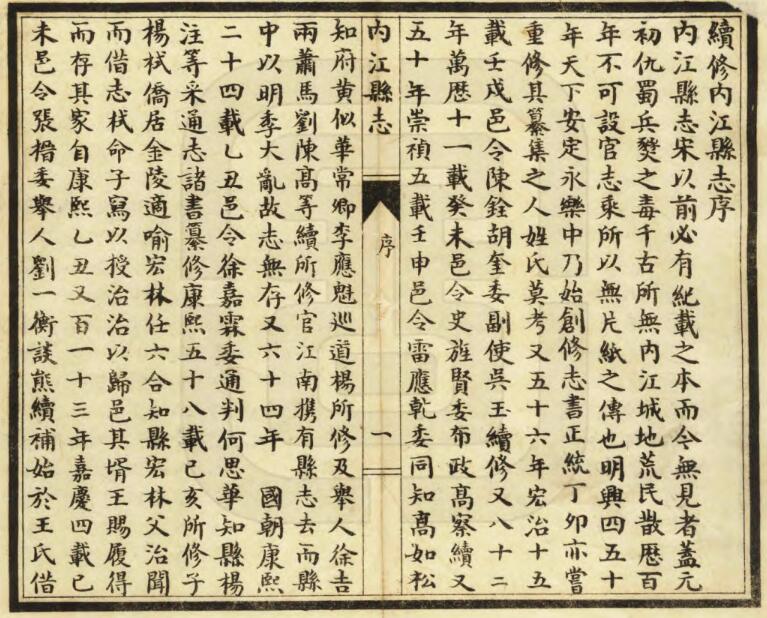 續修內江縣志序
內江縣志宋以前必有紀載之本而今無見者蓋元
初仇蜀兵燹之毒千古所無內江城地荒民散歷百
年不可設官志乘所以無片紙之傳也明興四五十
年天下安定永樂中乃始創修志書正統丁卯亦嘗
重修其纂集之人姓氏莫考又五十六年宏治十五
載壬戌邑令陳銓胡奎委副使吳玉續修又八十二
年萬歷十一載癸未邑令史旌賢委布政高察續又
五十年崇禎五載壬申邑令雷應乾委同知高如松
內江縣志
序
一
知府黃似華常卿李應魁巡道楊所修及舉人徐吉
兩蕭馬劉陳高等續所修官江南携有縣志去而縣
中以明季大亂故志無存又六十四年 國朝康熙
二十四載乙丑邑令徐嘉霖委通判何思華知縣楊
注等采通志諸書纂修康熙五十八載己亥所修子
楊栻僑居金陵適喻宏林任六合知縣宏林父治聞
而借志栻命子寫以授治治以歸邑其壻王賜履得
而存其家自康熙乙丑又百一十三年嘉慶四載己
未邑令張搢委舉人劉一衡談熊續補始於王氏借